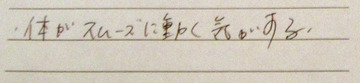 ・体がスムーズに動く気がする.